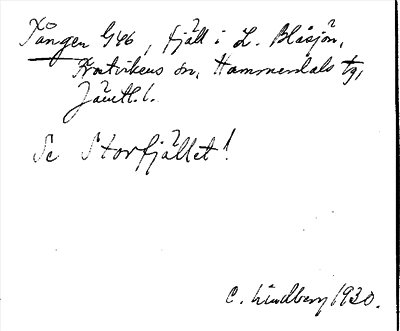 Tången 646, fjäll i L. Blåsjön,
Frostvikens sn, Hammerdals tg,
Jämtl. l.
Se Storfjället!
C. Lindberg 1930.